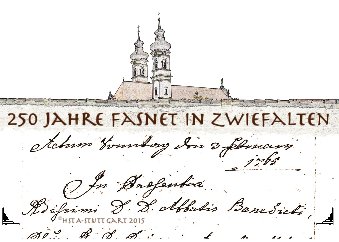 250 JAHRE FASNET IN ZWIEFALTEN
Actum Sonntag den 3 februarij
1765
In Praesentia
D. D. Abbatis Benedicti,
©HSTA-STUTTGART 2015